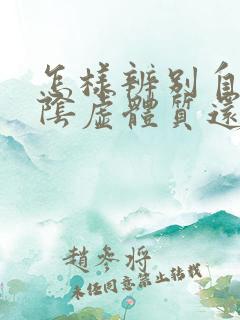 怎樣辨別自
陰虛體質還
趙參將
未經同意禁止轉載